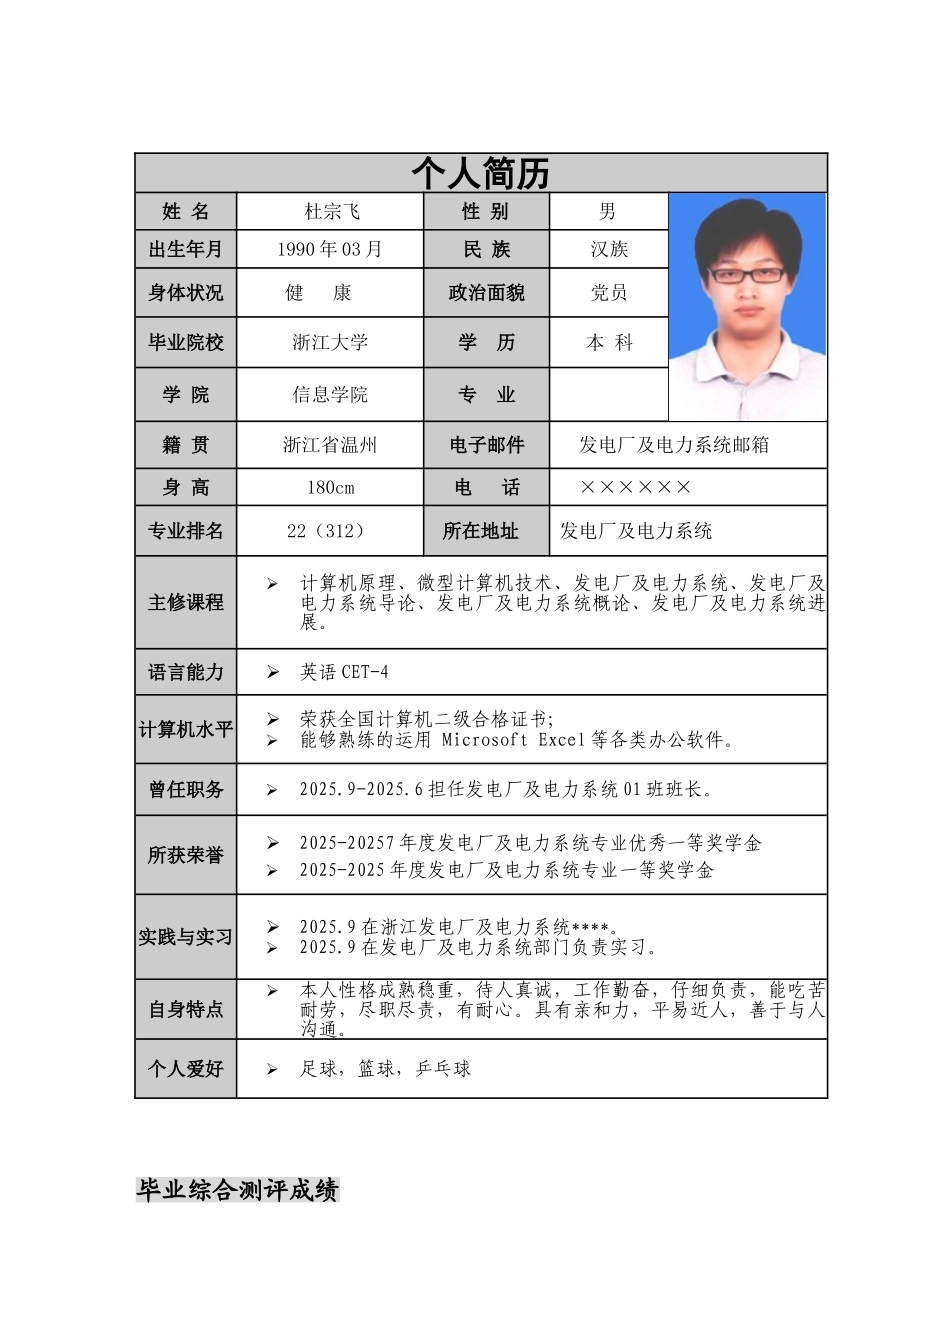 个人简历
姓 名 杜宗飞 性 别 男
出生年月 1990年03月 民 族 汉族
身体状况 健 康 政治面貌 党员
毕业院校 浙江大学 学 历 本 科
学 院 信息学院 专 业
籍 贯 浙江省温州 电子邮件 发电厂及电力系统邮箱
身 高 180cm 电 话 ××××××
专业排名 22（312） 所在地址 发电厂及电力系统
主修课程
➢ 计算机原理、微型计算机技术、发电厂及电力系统、发电厂及
电力系统导论、发电厂及电力系统概论、发电厂及电力系统进
展。
语言能力 ➢ 英语CET-4
计算机水平
➢ 荣获全国计算机二级合格证书；
➢ 能够熟练的运用 Microsoft Excel等各类办公软件。
曾任职务 ➢ 2025.9-2025.6担任发电厂及电力系统01班班长。
所获荣誉
➢ 2025-20257年度发电厂及电力系统专业优秀一等奖学金
➢ 2025-2025年度发电厂及电力系统专业一等奖学金
实践与实习
➢ 2025.9在浙江发电厂及电力系统****。
➢ 2025.9在发电厂及电力系统部门负责实习。
自身特点
➢ 本人性格成熟稳重，待人真诚，工作勤奋，仔细负责，能吃苦
耐劳，尽职尽责，有耐心。具有亲和力，平易近人，善于与人
沟通。
个人爱好 ➢ 足球，篮球，乒乓球
毕业综合测评成绩